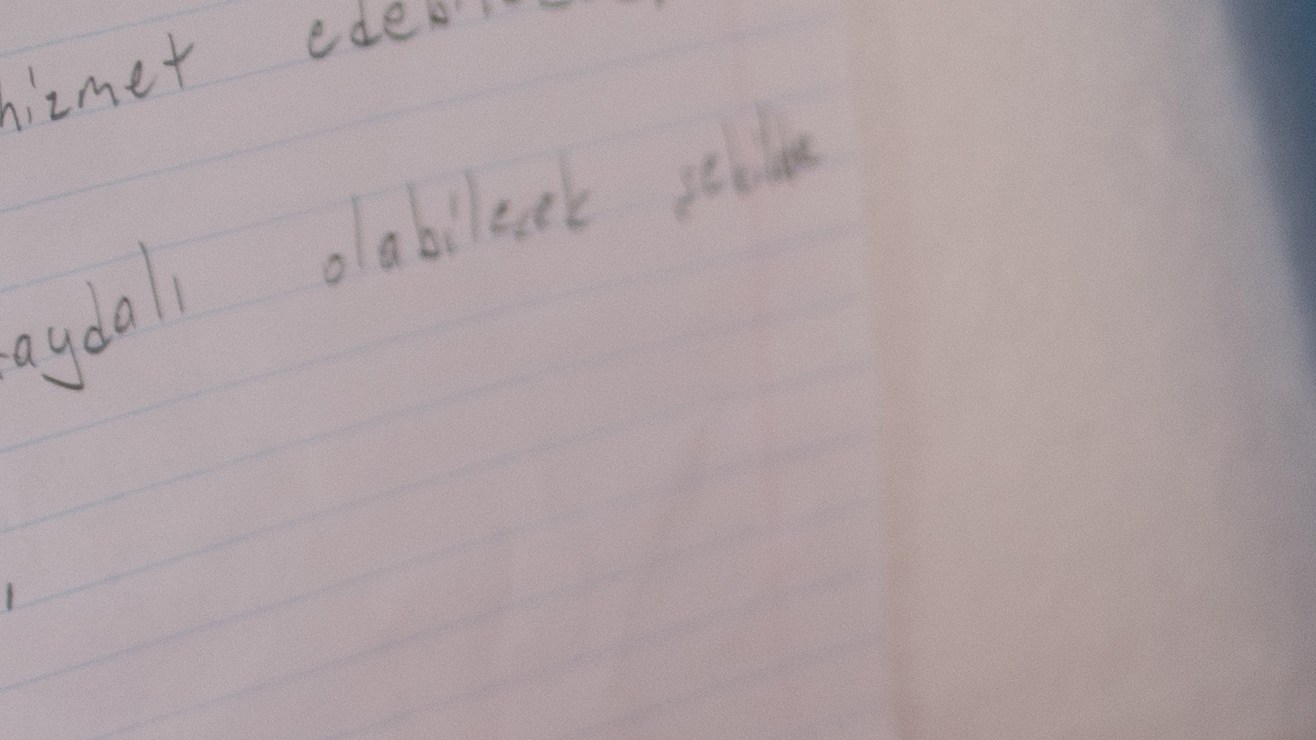 hizmet
aydalı olabilecek şekilde